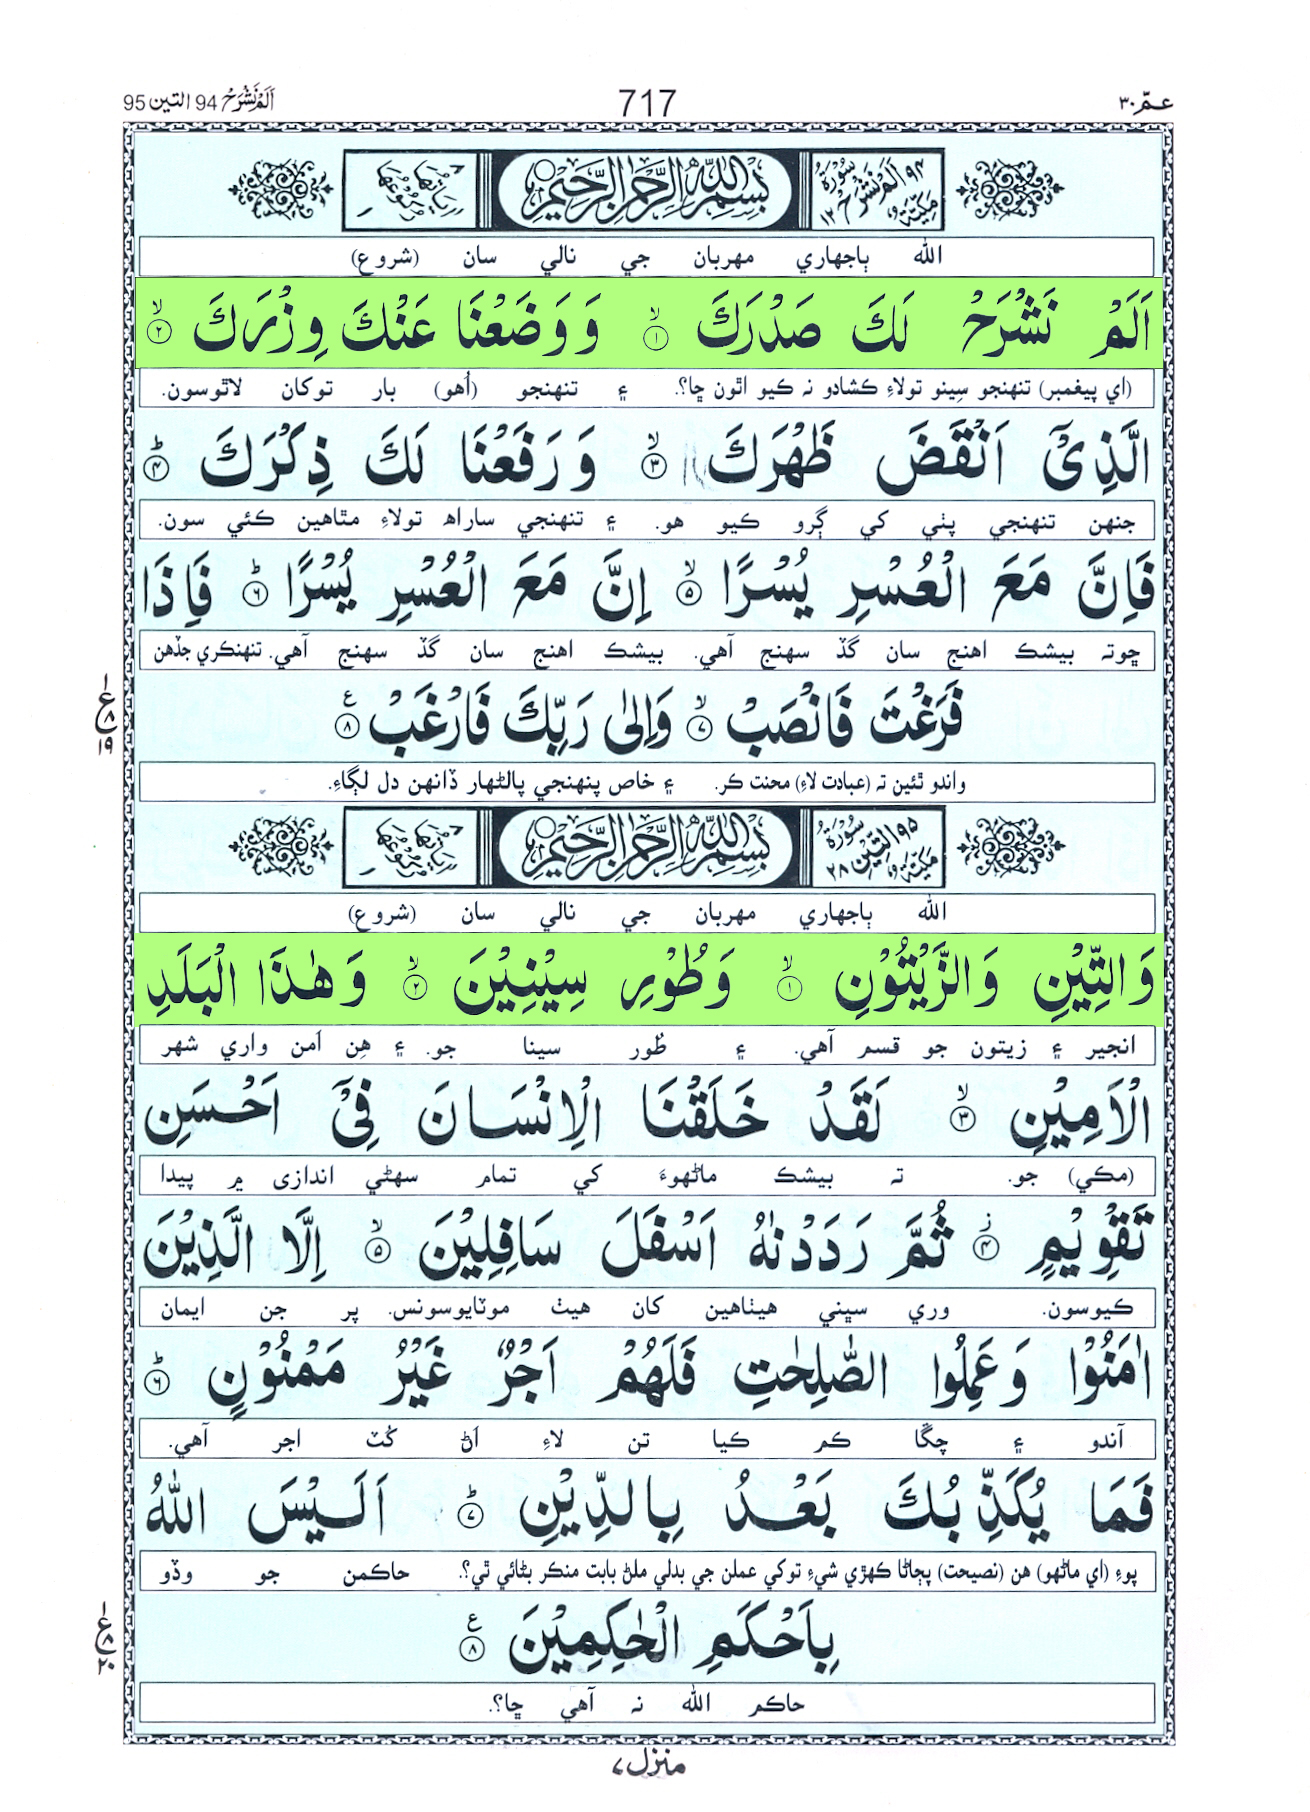 عـمّ ٣٠
717
اَلَمْ نَشْرَحْ 94 التين 95
٩٤ سُوْرَةُ اَلَمْ نَشْرَحْ مَكِّيَّةٌ ١٢
بِسْمِ اللّٰهِ الرَّحْمٰنِ الرَّحِيْمِ
اٰيَاتُهَا ٨ رُكُوْعُهَا ١
الله ٻاجهاري مهربان جي نالي سان (شروع)
اَلَمْ نَشْرَحْ لَكَ صَدْرَكَ ۙ ١ وَ وَضَعْنَا عَنْكَ وِزْرَكَ ۙ ٢
(اي پيغمبر) تنهنجو سِينو تولاءِ ڪشادو نہ ڪيو اٿون ڇا؟. ۽ تنهنجو (اُهو) بار توکان لاٿوسون.
الَّذِيْۤ اَنْقَضَ ظَهْرَكَ ۙ ٣ وَ رَفَعْنَا لَكَ ذِكْرَكَ ؕ ٤
جنهن تنهنجي پٺي کي ڳرو ڪيو هو. ۽ تنهنجي ساراھ تولاءِ مٿاهين ڪئي سون.
فَاِنَّ مَعَ الْعُسْرِ يُسْرًا ۙ ٥ اِنَّ مَعَ الْعُسْرِ يُسْرًا ؕ ٦ فَاِذَا
ڇوتہ بيشڪ اهنج سان گڏ سهنج آهي. بيشڪ اهنج سان گڏ سهنج آهي. تنهنڪري جڏهن
فَرَغْتَ فَانْصَبْ ۙ ٧ وَاِلٰى رَبِّكَ فَارْغَبْ ۧ ٨
١ ع ٨ ١٩
واندو ٿئين تہ (عبادت لاءِ) محنت ڪر. ۽ خاص پنهنجي پالڻهار ڏانهن دل لڳاءِ.
٩٥ سُوْرَةُ التِّيْنِ مَكِّيَّةٌ ٢٨
بِسْمِ اللّٰهِ الرَّحْمٰنِ الرَّحِيْمِ
اٰيَاتُهَا ٨ رُكُوْعُهَا ١
الله ٻاجهاري مهربان جي نالي سان (شروع)
وَالتِّيْنِ وَالزَّيْتُوْنِ ۙ ١ وَ طُوْرِ سِيْنِيْنَ ۙ ٢ وَ هٰذَا الْبَلَدِ
انجير ۽ زيتون جو قسم آهي. ۽ طُور سينا جو. ۽ هِن اَمن واري شهر
الْاَمِيْنِ ۙ ٣ لَقَدْ خَلَقْنَا الْاِنْسَانَ فِيْۤ اَحْسَنِ
(مڪي) جو. تہ بيشڪ ماڻهوءَ کي تمام سهڻي اندازي ۾ پيدا
تَقْوِيْمٍ ؗ ٤ ثُمَّ رَدَدْنٰهُ اَسْفَلَ سَافِلِيْنَ ۙ ٥ اِلَّا الَّذِيْنَ
ڪيوسون. وري سڀني هيٺاهين کان هيٺ موٽايوسونس. پر جن ايمان
اٰمَنُوْا وَ عَمِلُوا الصّٰلِحٰتِ فَلَهُمْ اَجْرٌ غَيْرُ مَمْنُوْنٍ ؕ ٦
آندو ۽ چڱا ڪم ڪيا تن لاءِ اَڻ کُٽ اجر آهي.
فَمَا يُكَذِّبُكَ بَعْدُ بِالدِّيْنِ ؕ ٧ اَلَيْسَ اللّٰهُ
پوءِ (اي ماڻهو) هن (نصيحت) پڄاڻا ڪهڙي شيءِ توکي عملن جي بدلي ملڻ بابت منڪر بڻائي ٿي؟. حاڪمن جو وڏو
بِاَحْكَمِ الْحٰكِمِيْنَ ۧ ٨
١ ع ٨ ٢٠
حاڪم الله نہ آهي ڇا؟.
منزل ٧